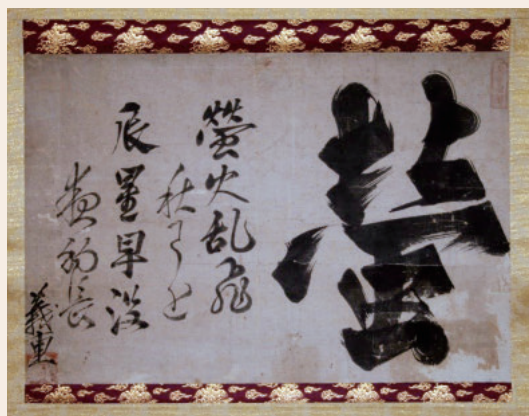 螢
螢火乱飛
秋已近
辰星早没
夜初長